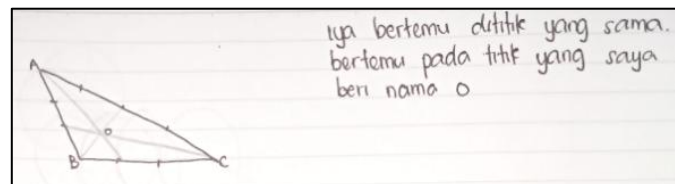 iya bertemu dititik yang sama.
bertemu pada titik yang saya
beri nama O
A
O
B
C